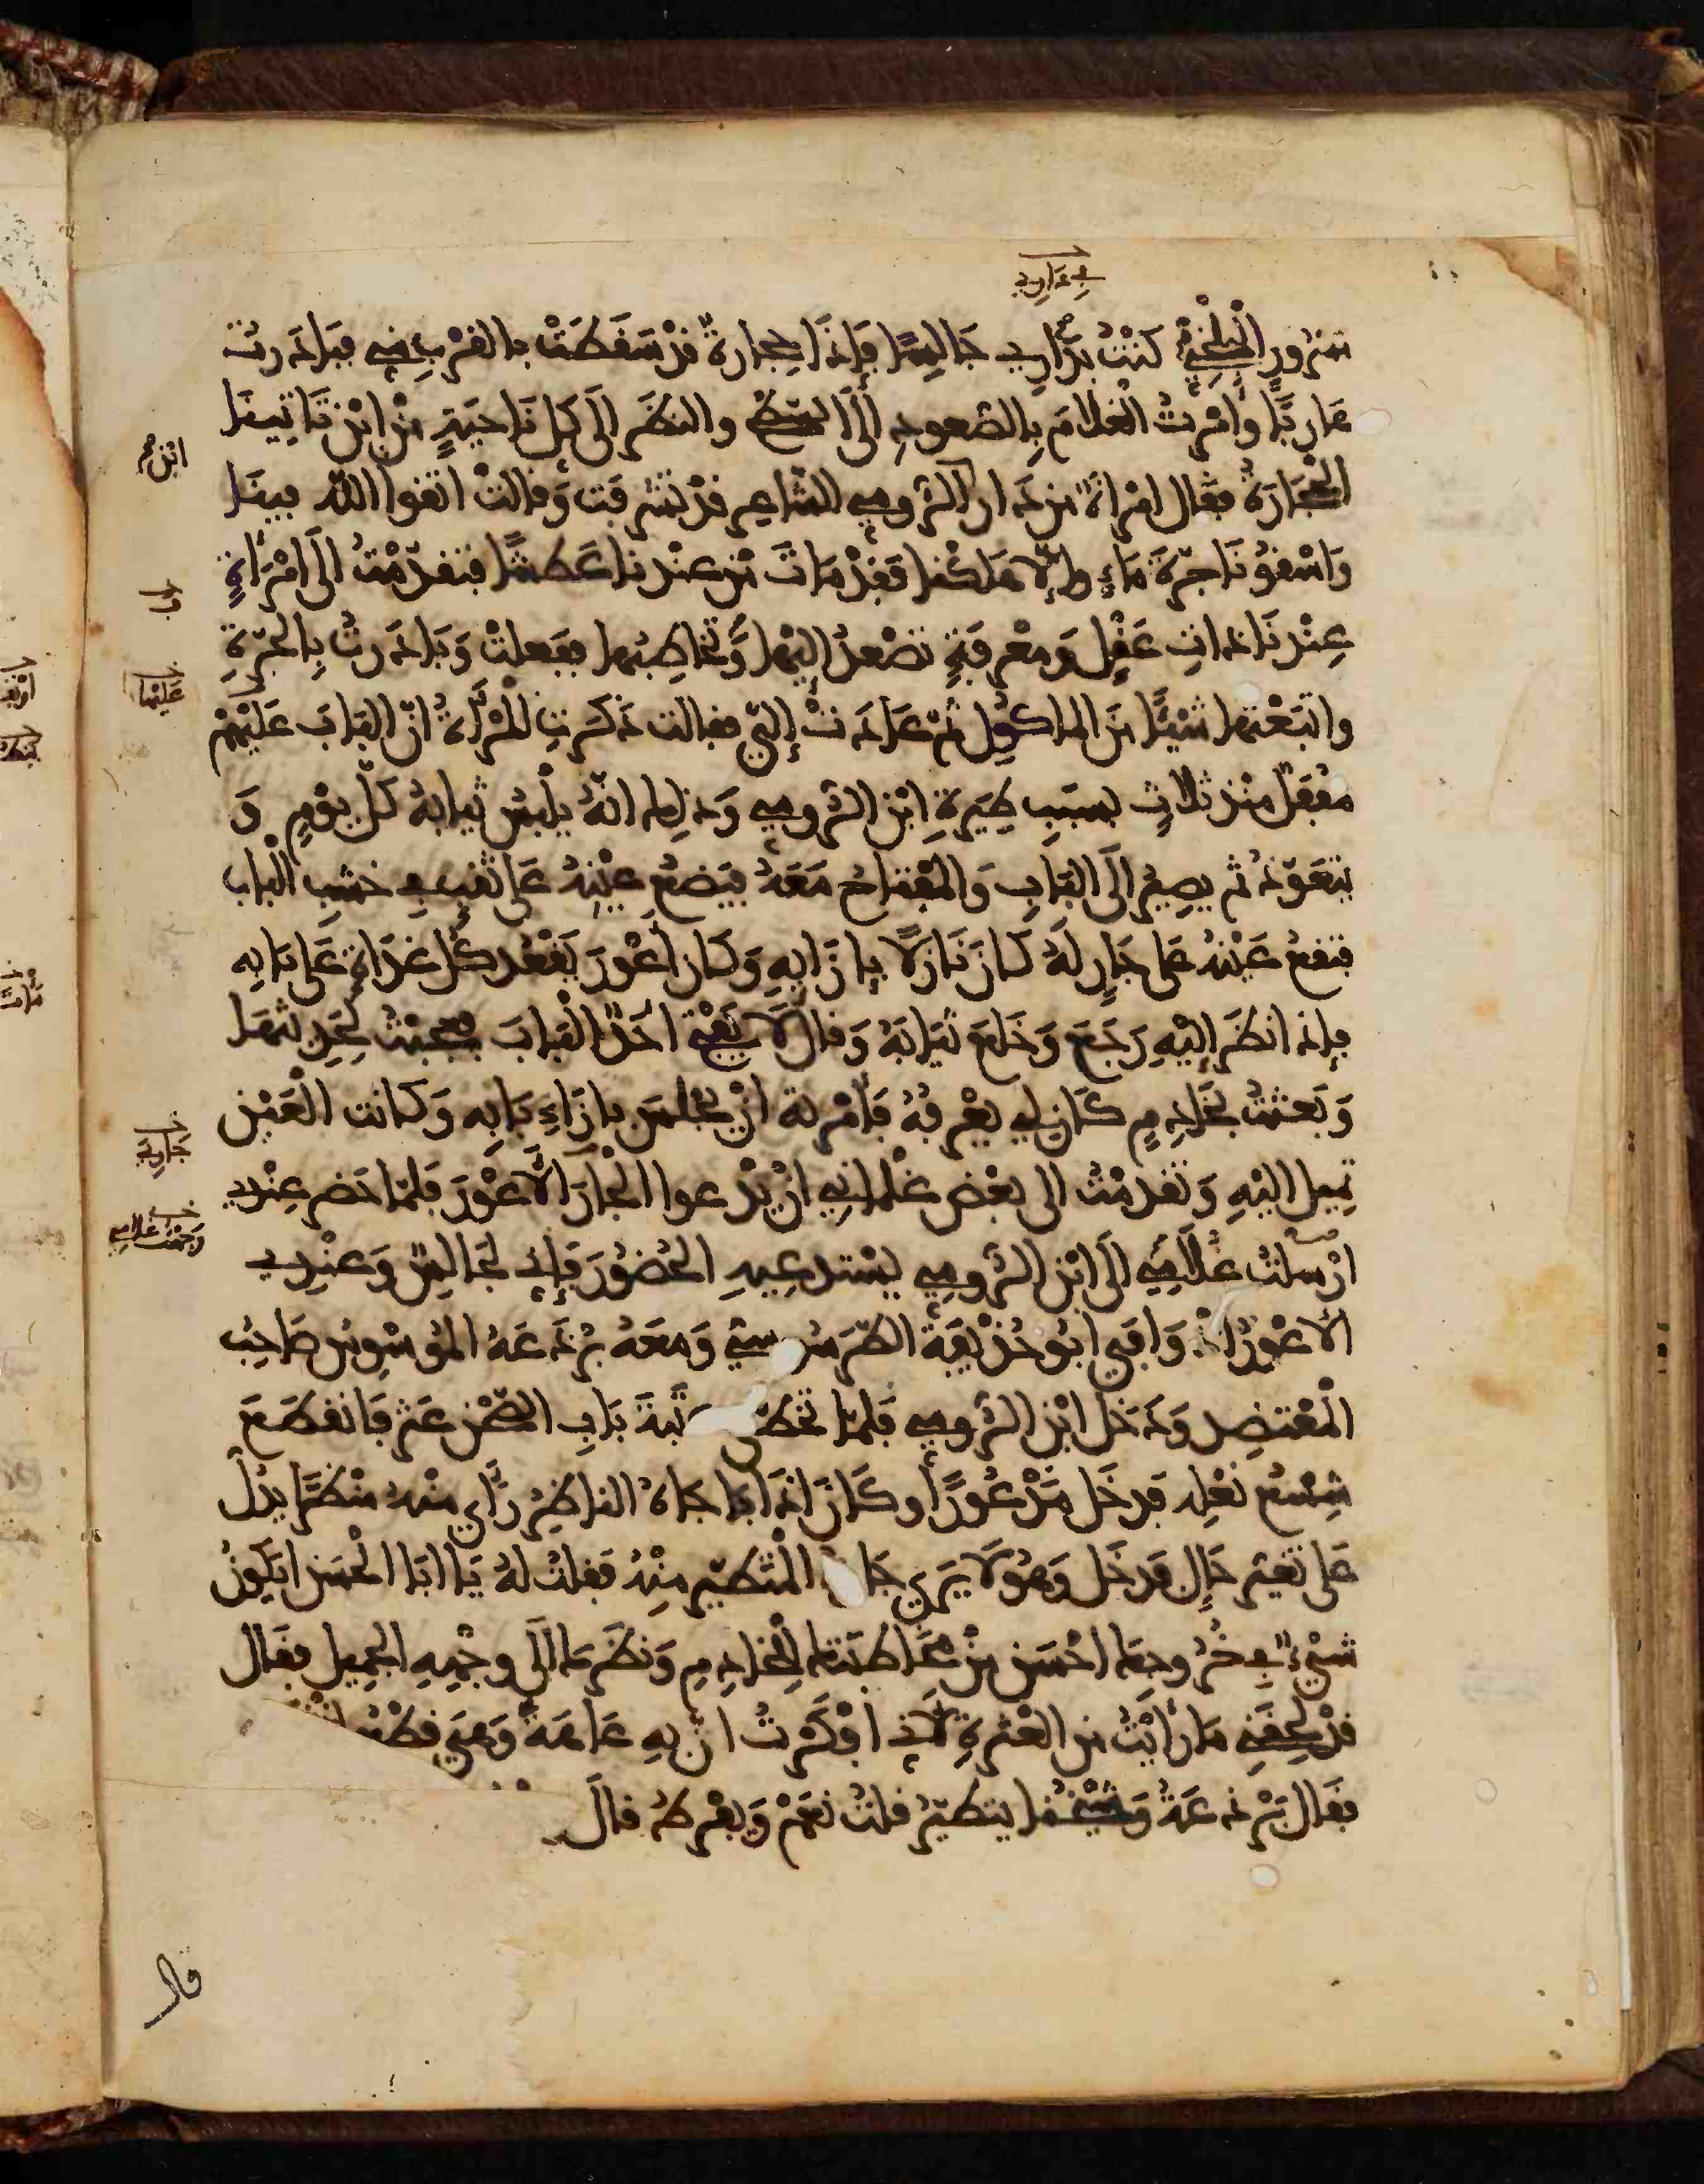 في داري
مسرور البلخي كنت بداري جالسا فإذا حجارة قد سقطت بالقرب مني فبادرت
هاربا وأمرت الغلام بالصعود إلى السطح والنظر إلى كل ناحية من اين تاتينا
اين صح
الحجارة فقال امراة من دار ابن الرومي الشاعر قد تشرفت وقالت اتقوا الله فينا
واسقونا جرة ماء وإلا هلكنا فقد مات من عندنا عطشا فتقدمت إلى امرأة
عندنا ذات عقل ومعرفة تصعد إليها وتخاطبها ففعلت وبادرت بالجرة
علينا
واتبعتها شيئا من الماكول ثم عادت إلي فقالت ذكرت المرأة ان الباب عليهم
مقفل منذ ثلاث بسبب طيرة ابن الرومي وذلك انه يلبس ثيابه كل يوم و
يتعوذ ثم يصير إلى الباب والمفتاح معه فيضع عينه على ثقب في خشب الباب
فتقع عينه على جار له كان نازلا بإزايه وكان أعور يقعد كل غداة على بابه
فإذا نظر إليه رجع وخلع ثيابه وقال لا يفتح احد الباب فعجبت لحديثها
وبعثت بخادم كان لي يعرفه فأمرته ان يجلس بازاء بابه وكانت العين
جاريه
تميل اليه وتقدمت الى بعض غلماني ان يدعوا الجار الأعور فلما حضر عندي
وجهت غلامي
ارسلت غلامي إلى ابن الرومي يستدعيه الحضور فإني لجالس وعندي
الأعور إذ وافى ابو حذيفة الطرسوسي ومعه برذعة الموسوس صاحب
المعتضد ودخل ابن الرومي فلما تخطى عتبة باب الصحن عثر فانقطع
شسع نعله فدخل مذعورا وكان إذا فاجاه الناظر رأى منه منظرا يدل
على تغير حال فدخل وهو لا يرى جاره المتطير منه فقلت له يا ابا الحسن ايكون
شيء في خروجك احسن من مخاطبتك للخادم ونظرك إلى وجهه الجميل فقال
قد لحقني ما رأيت من العثرة لأني افكرت ان به عاهة وهي قطع انثييه
فقال برذعة وشيخنا يتطير قلت نعم ويفرط قال
قال